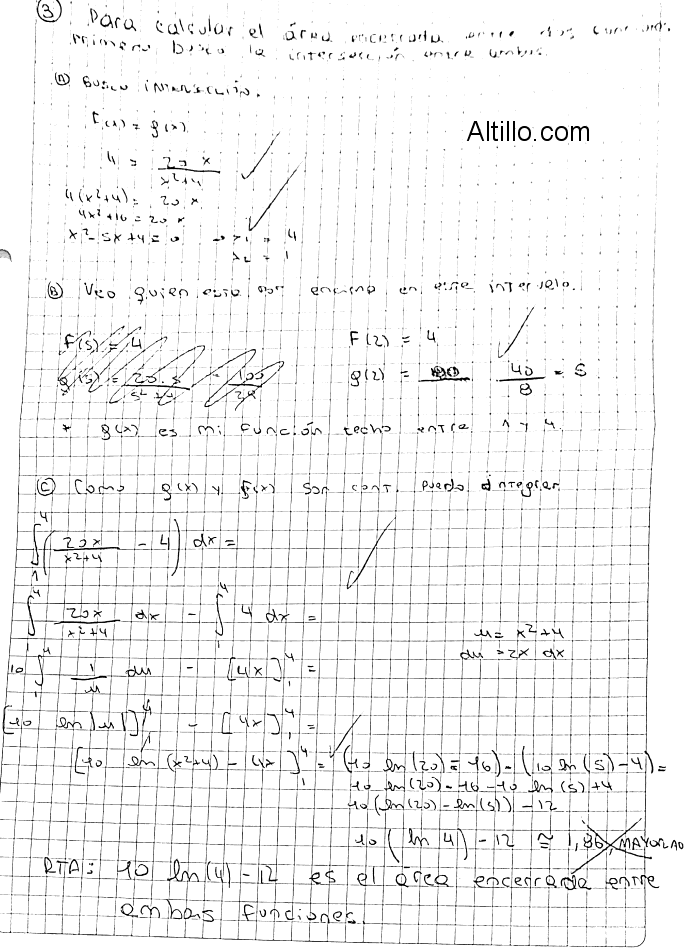 ③ Para calcular el área encerrada entre dos curvas,
primero busco la intersección entre ambas.
Ⓐ Busco intersección.
F(x) = g(x)
Altillo.com
4 = 20x / x²+4
4(x²+4) = 20x
4x²+16 = 20x
x²-5x+4 = 0 → x₁ = 4
x₂ = 1
Ⓑ Veo quien esta por encima en este intervalo.
f(5) = 4
F(2) = 4
g(5) = 20.5 / 5²+4 = 100 / 29
g(2) = 40 / 8 = 5
* g(x) es mi función techo entre 1 y 4.
Ⓒ Como g(x) y f(x) son cont. puedo integrar.
∫₁⁴ (20x / x²+4 - 4) dx =
∫₁⁴ 20x / x²+4 dx - ∫₁⁴ 4 dx =
u = x²+4
du = 2x dx
10 ∫₁⁴ 1/u du - [4x]₁⁴ =
[10 ln|u|]₁⁴ - [4x]₁⁴ =
[10 ln(x²+4) - 4x]₁⁴ = (10 ln(20) - 16) - (10 ln(5) - 4) =
10 ln(20) - 16 - 10 ln(5) + 4
10(ln(20) - ln(5)) - 12
10(ln 4) - 12 ≅ 1,86
RTA: 10 ln(4) - 12 es el área encerrada entre
ambas funciones.